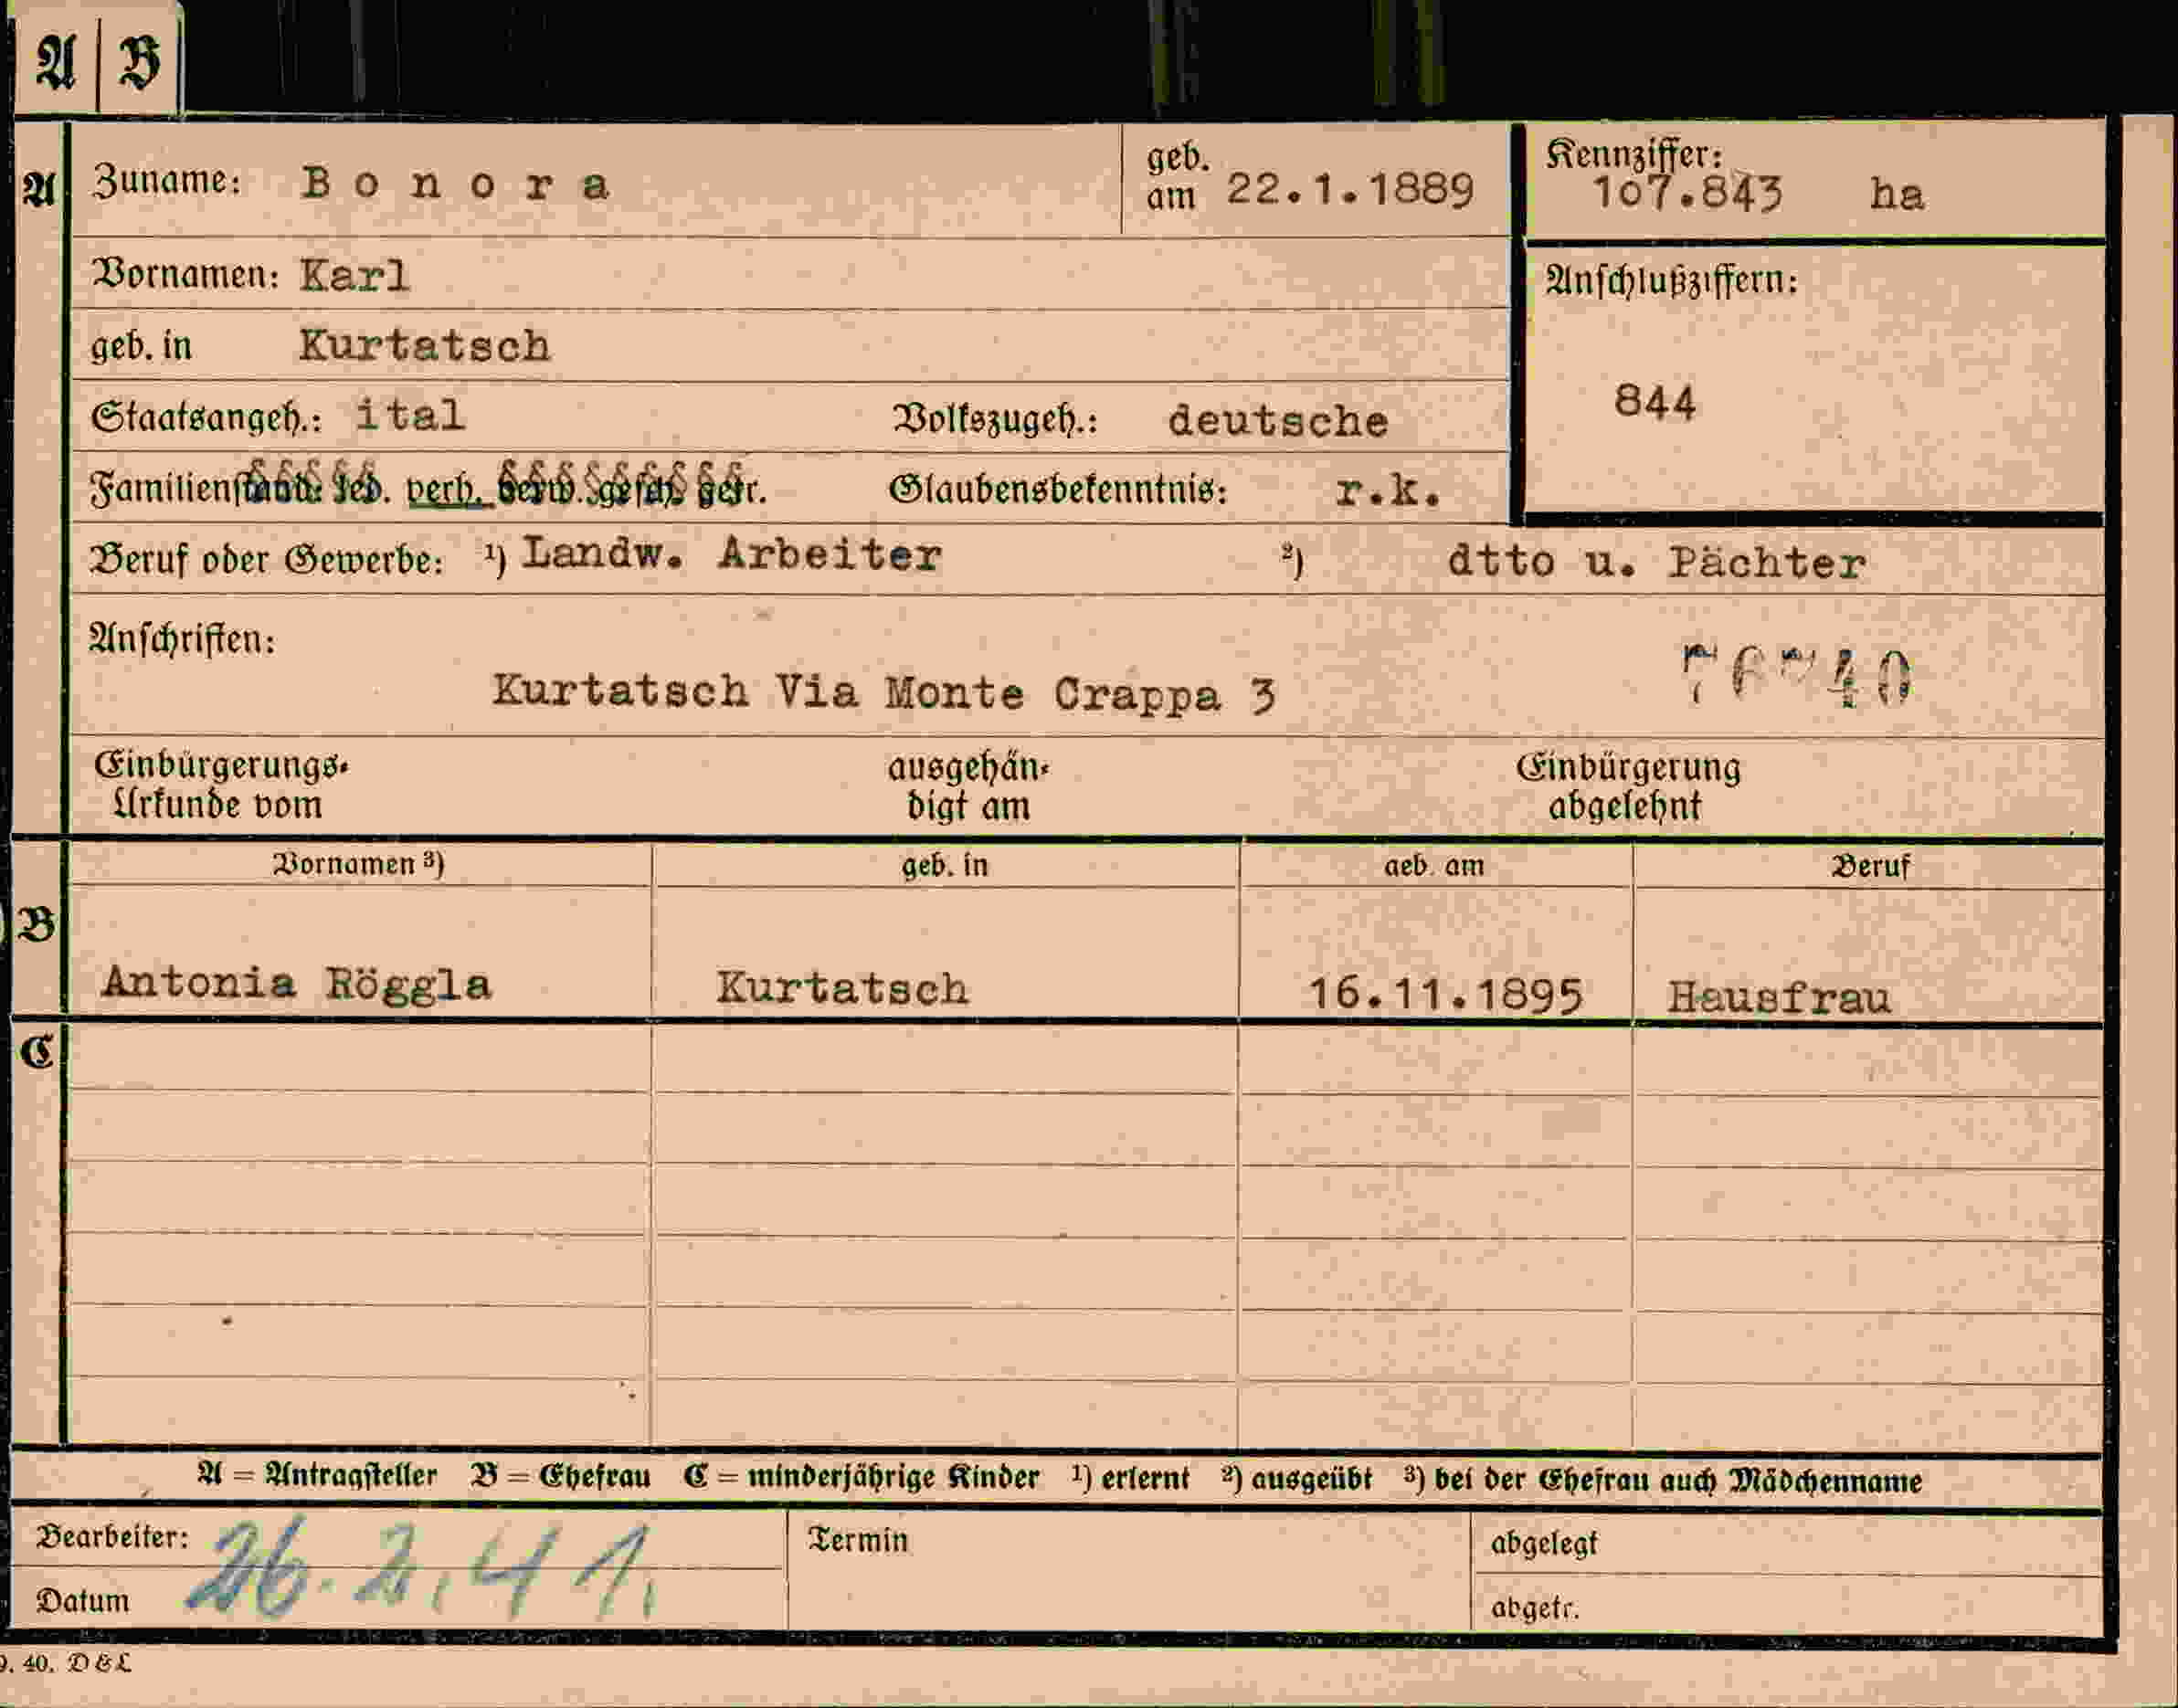 A | B
A
Zuname: B o n o r a
geb. am 22.1.1889
Kennziffer: 107.843 ha
Vornamen: Karl
Anschlußziffern:
844
geb. in Kurtatsch
Staatsangeh.: ital Volkszugeh.: deutsche
Familienstand: led. verh. verw. gesch. getr. Glaubensbekenntnis: r.k.
Beruf oder Gewerbe: 1) Landw. Arbeiter 2) dtto u. Pächter
Anschriften:
Kurtatsch Via Monte Crappa 3
Einbürgerungs-
Urkunde vom
ausgehän-
digt am
Einbürgerung
abgelehnt
B
Vornamen 3) geb. in geb. am Beruf
Antonia Röggla Kurtatsch 16.11.1895 Hausfrau
C
A = Antragsteller B = Ehefrau C = minderjährige Kinder 1) erlernt 2) ausgeübt 3) bei der Ehefrau auch Mädchenname
Bearbeiter:
Datum 26.2.41.
Termin
abgelegt
abgetr.
9. 40. D&L